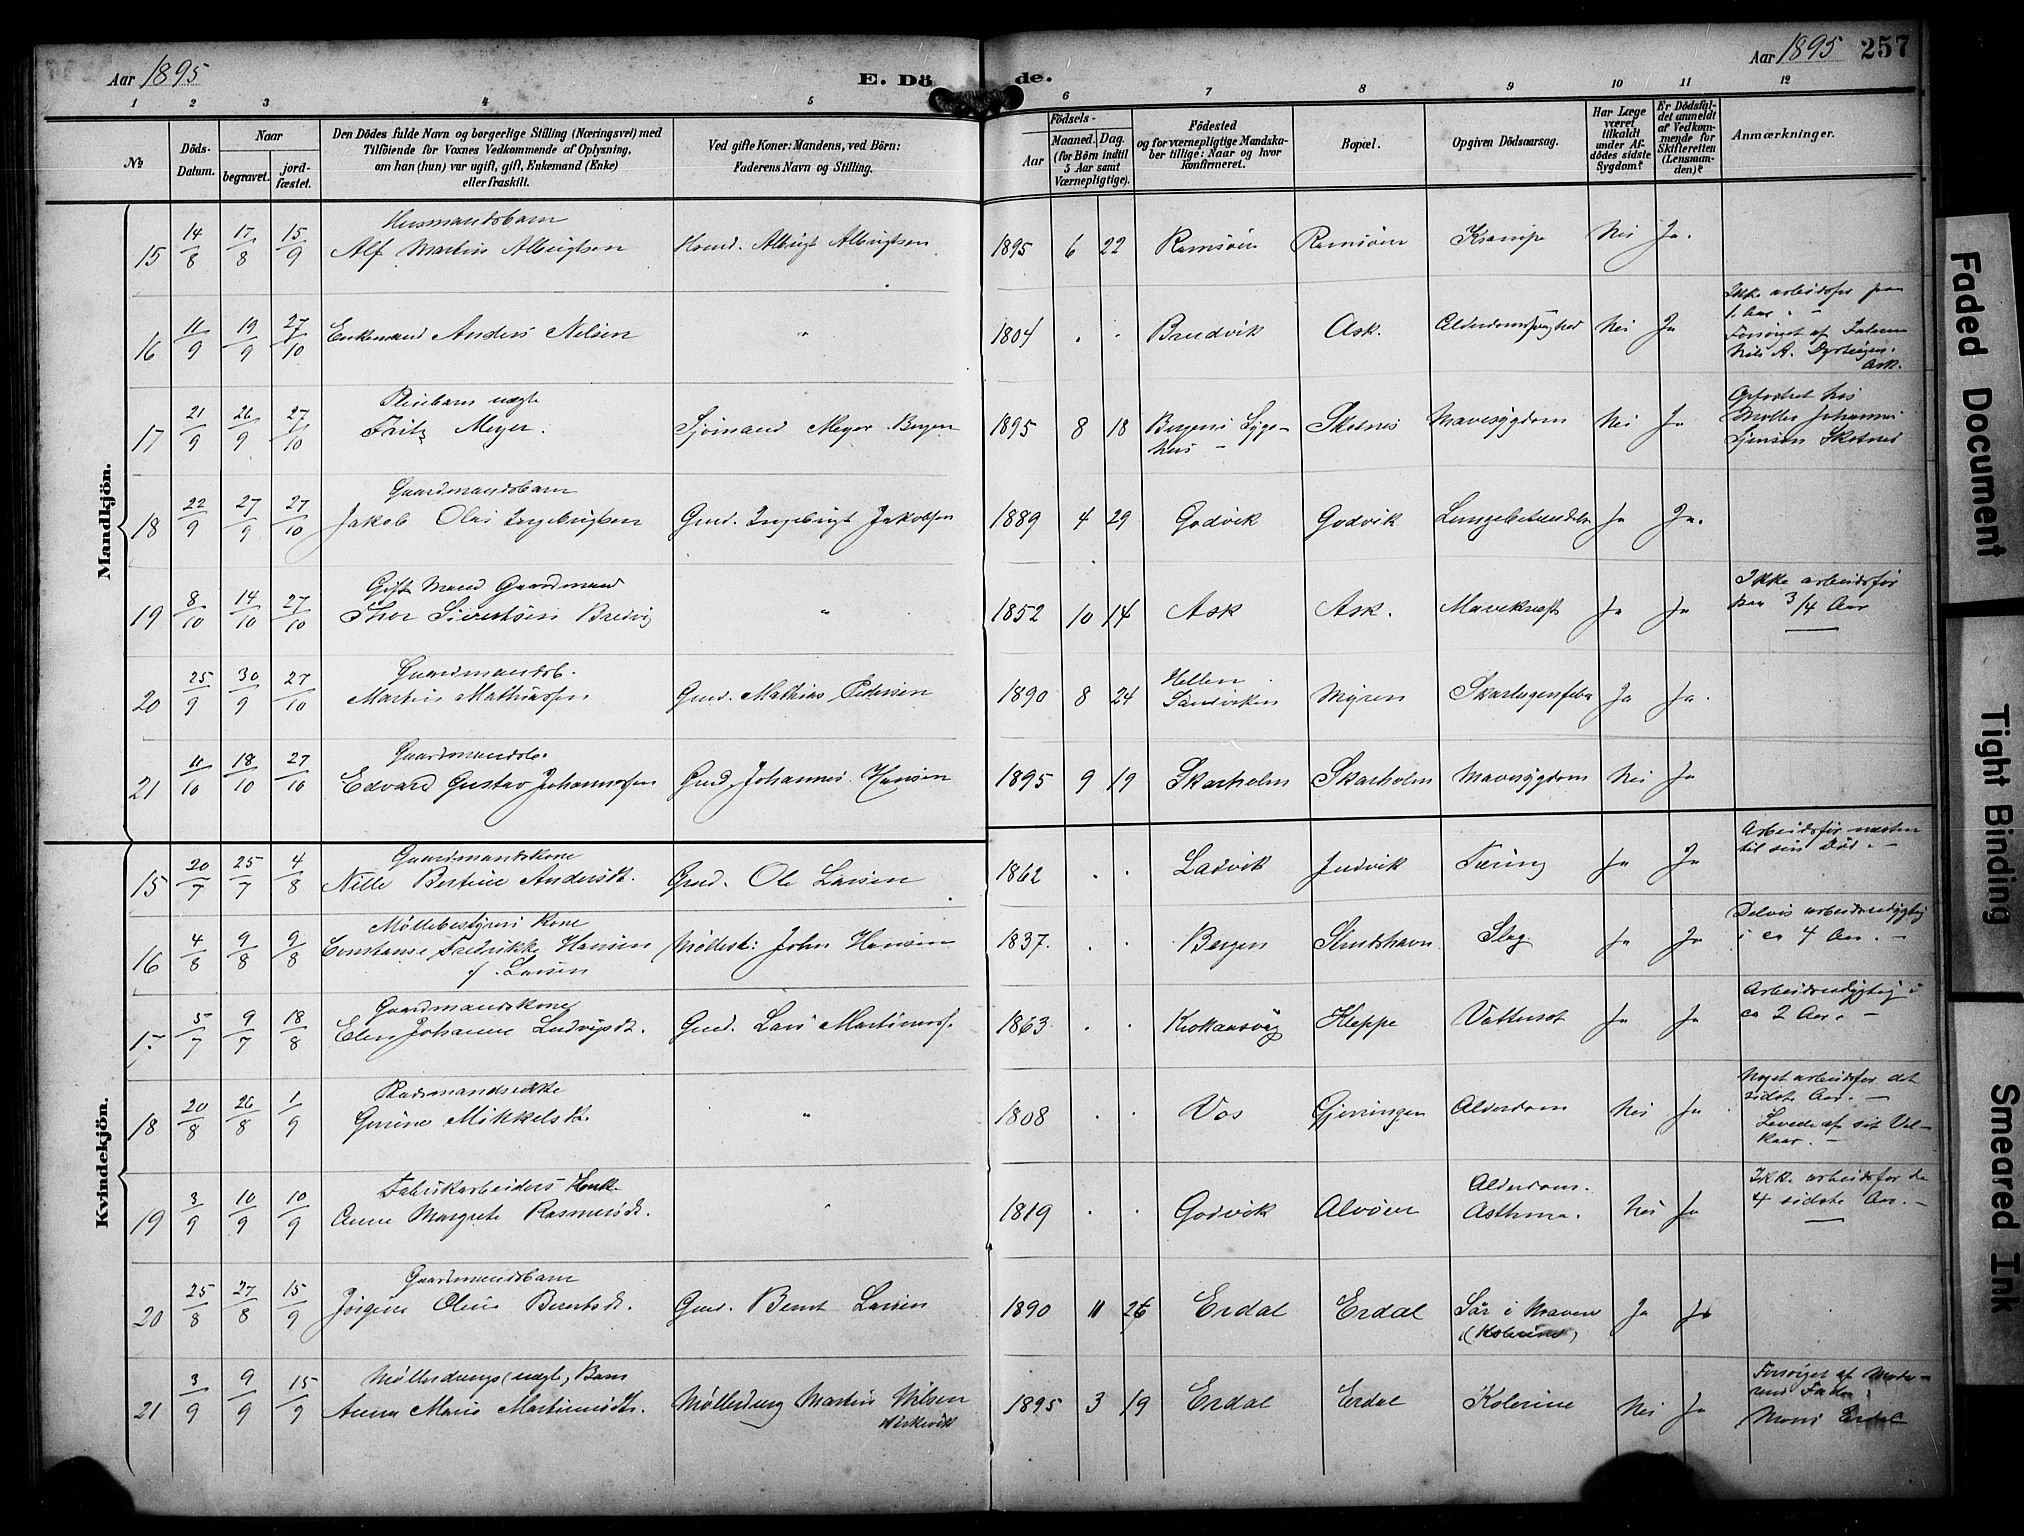 Aar 1895
E. Dö de.
Aar 1895 257
1 2 3 4 5 6 7 8 9 10 11 12
№
Döds-
Datum.
Naar
begravet.
jord-
fæstet.
Den Dödes fulde Navn og borgerlige Stilling (Næringsvei) med
Tilföiende for Voxnes Vedkommende af Oplysning,
om han (hun) var ugift, gift, Enkemand (Enke)
eller fraskilt.
Ved gifte Koner: Mandens, ved Börn:
Faderens Navn og Stilling.
Födsels-
Aar
Maaned. Dag.
(for Börn indtil
5 Aar samt
Værnepligtige).
Födested
og for værnepligtige Mandska-
ber tillige: Naar og hvor
konfirmeret.
Bopæl.
Opgiven Dödsaarsag.
Har Læge
været
tilkaldt
under Af-
dödes sidste
Sygdom?
Er Dödsfal-
det anmeldt
af Vedkom-
mende for
Skifteretten
(Lensman-
den)?
Anmærkninger.
Mandkjön.
Husmandsbarn
15 14/8 17/8 15/9 Alf Martin Albrigtsen Huusd. Albrigt Albrigtsen 1895 6 22 Ramsöien Ramsöien Krampe Nei Ja.
16 11/9 19/9 27/10 Enkemand Anders Nilsen " 1804 Brudvik Ask. Nei Ja
Ikke arbeidsfør paa
Forsørget af
Nils A.
Ask.
Pleiebarn uægte
17 21/9 26/9 27/10 Fritz Meyer. Sjømand Meyer Bergen 1895 8 18 Bergens Syge-
hus - Skotnes Mavesygdom Nei Ja
Opfostret hos
Møller Johannes
Skotnes
Gaardmandsbarn
18 22/9 27/9 27/10 Jakob Olai Ingebrigtsen Gmd. Ingebrigt Jakobsen 1889 4 29 Godvik Godvik Lungebetændelse Ja Ja.
Gift Mand Gaardmand
19 8/10 14/10 27/10 Thor Sivertsen Bredvig " 1852 10 14 Ask Ask. Mavekræft Ja Ja
Ikke arbeidsfør
paa 3/4 Aar
Gaardmandsb.
20 25/9 30/9 27/10 Martin Mathiassen Gmd. Mathias Pedersen 1890 8 24 Hellen
Sandviken Myren Skarlagensfeber Ja Ja.
Gaardmandsb.
21 11/10 18/10 27/10 Edvard Gustav Johannessen Gmd. Johannes Hansen 1895 9 19 Skarholm Skarholm Mavesygdom Nei Ja
Kvindekjön.
Gaardmandskone
15 20/7 25/7 4/8 Nille Bertine Andersdt. Gmd. Ole Larsen 1862 Ladvik Judvik Tæring Ja Ja
Arbeidsfør næsten
til sin Død. -
Møllebestyrers Kone
16 4/8 9/8 9/8 Constanse Fredrikke Hansen Møllest: John Hansen 1837. Bergen Slag Ja Ja
f. Larsen
Delvis arbeidsudygtig
i ca 4 Aar. -
Gaardmandskone
17 5/7 9/7 18/8 Elen Johanne Ludvigsdt. Gmd. Lars Martinuss. 1863 Kleppe Vattersot Ja Ja
Arbeidsudygtig i
ca 2 Aar. -
18 20/8 26/8 1/9 Gurine Mikkelsdt. " 1808 Vos Gjerringen Alderdom Nei Ja
Noget arbeidsfør det
sidste Aar. -
Levede af sit Vel-
kaar. -
Fabrikarbeiders Enke
19 3/9 10/9 10/9 Anne Margrete Rasmusdt. " 1819 Godvik Alvöen Alderdom.
Asthma. Nei Ja
Ikke arbeidsfør de
4 sidste Aar. -
Gaardmandsbarn
20 25/8 27/8 15/9 Jörgine Oline Berntsdt. Gmd. Bernt Larsen 1890 11 26 Erdal Erdal Sår i Maven
(Kolerine) Ja Ja
Møllerdrengs (uægte) Barn
21 3/9 9/9 15/9 Anna Marie Martinusdt. Møllerdreng Martin Nilsen
1895 3 19 Erdal Erdal Kolerine Nei Ja
Forsørget af Mode-
rens Fader:
Mons Erdal
Faded Document
Tight Binding
Smeared Ink